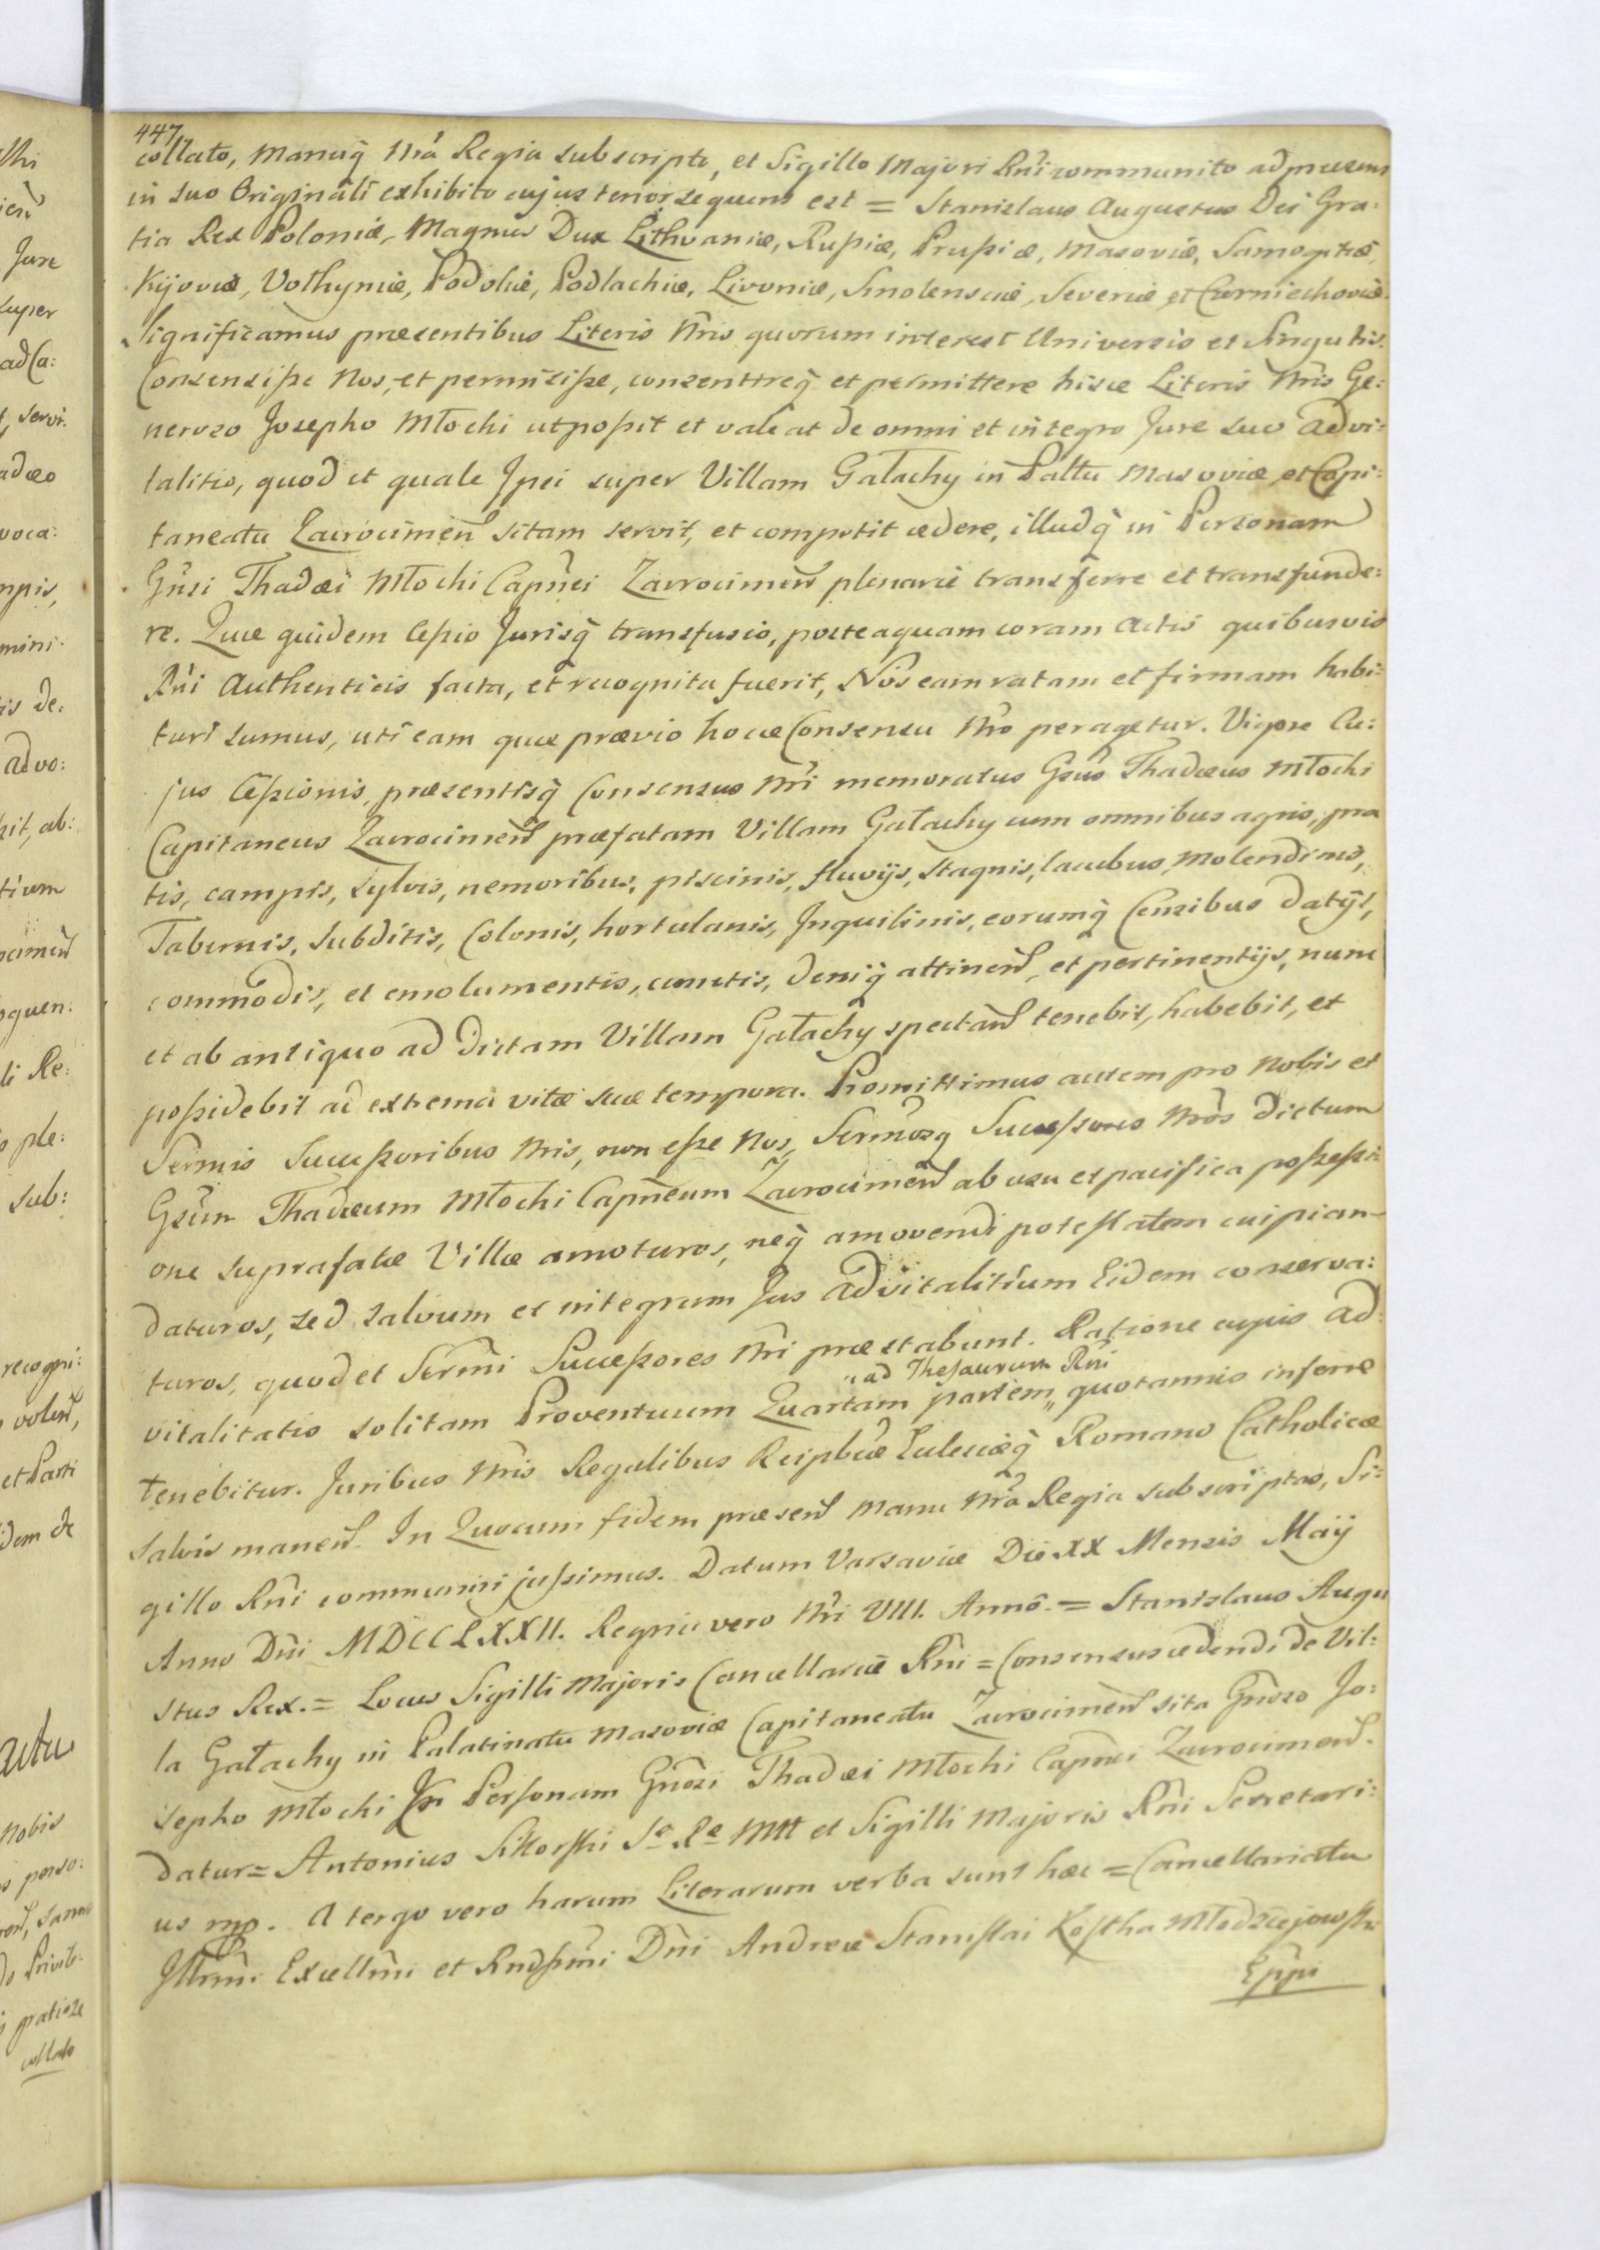 447
collato, Manuq̃ Nrã Regia subscripto, et Sigillo Majori Rñi communito ad præsens
in suo Originali exhibito cujus tenor sequens est = Stanislaus Augustus Dei Gra:
tia Rex Poloniæ, Magnus Dux Lithvaniæ, Rußiæ, Prußiæ, Masoviæ, Samogitiæ,
Kijoviæ, Volhyniæ, Podoliæ, Podlachiæ, Livoniæ, Smolensciæ, Severiæ et Czerniechoviæ.
Significamus præsentibus Literis Nris quorum interest Universis et Singulis.
Consensiße Nos, et permisiße, consentireq̃ et permittere hisce Literis Nris Ge:
neroso Josepho Młocki ut poßit et valeat de omni et integro Jure suo Advi:
talitio, quod et quale Ipsi super Villam Gałachy in Palttu Masoviæ et Capi:
taneatu Zacrocimeñ sitam servit, et competit cedere, illudq̃ in Personam
Gñsi Thadæi Młocki Capñei Zacrocimeñ plenarie transferre et transfunde:
re. Quæ quidem Ceßio Jurisq̃ transfusio, posteaquam coram Actis quibusvis
Rñi Authenticis facta, et recognita fuerit, Nos eam ratam et firmam habi:
turi sumus, uti eam quæ prævio hocce Consensu Nro peragetur. Vigore Cu:
jus Ceßionis, præsentisq̃ Consensus Nri memoratus Gsũs Thadæus Młocki
Capitaneus Zacrocimeñ præfatam Villam Gałachy cum omnibus agris, pra
tis, campis, sylvis, nemoribus, piscinis, fluvijs, stagnis, lacubus, Molendinis,
Tabernis, Subditis, Colonis, hortulanis, Inquilinis, eorumq̃ Censibus datijs,
commodis, et emolumentis, cunctis, deniq̃ attineñ, et pertinentijs, nunc
et ab antiquo ad dictam Villam Gałachy spectañ tenebit, habebit, et
poßidebit ad extrema vitæ suæ tempora. Promittimus autem pro Nobis et
Sermis Succeßoribus Nris, non eße Nos, Sermosq̃ Succeßores Nros dictum
Gsum Thadæum Młocki Capñeum Zacrocimeñ ab usu et pacifica poßeßi:
one suprafatæ Villæ amoturos, neq̃ amovendi potestatem cuipiam
daturos, sed salvum et integrum Jus Advitalitium Eidem conserva:
turos, quod et Sermi Succeßores Nri præstabunt. Ratione cujus Ad:
vitalitatis solitam Proventuum Quartam partem „ad Thesaurum Rñi„ quotannis inferre
tenebitur. Juribus Nris Regalibus Reipbcæ Ecclesiæq̃ Romano Catholicæ
salvis maneñ. In Quorum fidem præseñ Manu Nra Regia subscriptas, Si:
gillo Rñi communiri jußimus. Datum Varsaviæ Die XX Mensis Maij
Anno Dñi MDCCLXXII. Regni vero Nri VIII. Anno. = Stanislaus Augu
stus Rex. = Locus Sigilli Majoris Cancellariæ Rñi = Consensus cedendi de Vil:
la Gałachy in Palatinatu Masoviæ Capitaneatu Zacrocimeñ sita Gñoso Jo:
sepho Młocki In Personam Gñosi Thadæi Młocki Capñei Zacrocimeñ.
datur = Antonius Sikorski Sæ Ræ Mtt et Sigilli Majoris Rñi Secretari:
us mp. A tergo vero harum Literarum verba sunt hæc = Cancellariatu
Illrmi. Excellmi et Rndßmi Dñi Andreæ Stanislai Kostka Młodzieiowski
Eppi